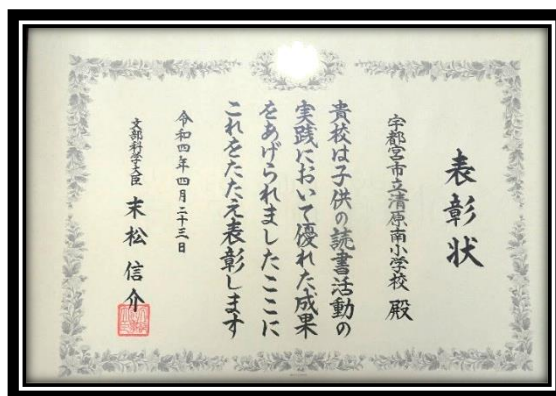 表彰状
宇都宮市立清原南小学校 殿
貴校は子供の読書活動の
実践において優れた成果
をあげられましたここに
これをたたえ表彰します
令和四年四月二十三日
文部科学大臣 末松信介